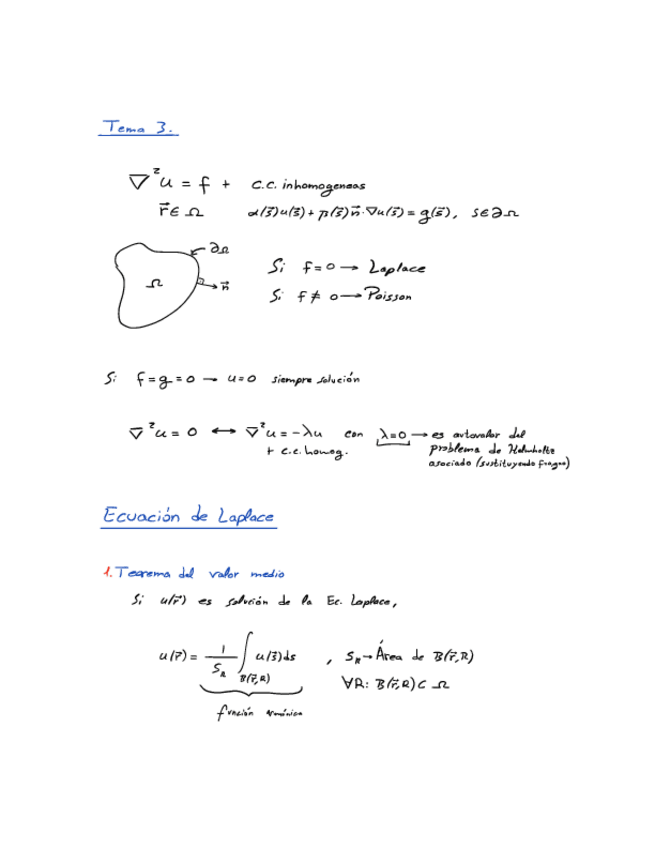 Tema 3.
∇²u = f + c.c. inhomogeneas
r⃗ ∈ Ω α(s⃗)u(s⃗) + β(s⃗)n⃗·∇u(s⃗) = g(s⃗), s∈∂Ω
∂Ω
Ω
n⃗
Si f=0 → Laplace
Si f≠0 → Poisson
Si f=g=0 → u=0 siempre solución
∇²u = 0 ↔ ∇²u = -λu con λ=0 → es autovalor del
+ c.c. homog. problema de Helmholtz
asociado (sustituyendo f=0 g=0)
Ecuación de Laplace
1. Teorema del valor medio
Si u(r⃗) es solución de la Ec. Laplace,
u(r⃗) = 1/S_R ∫_{B(r⃗,R)} u(s⃗)ds , S_R → Área de B(r⃗,R)
∀R: B(r⃗,R) ⊂ Ω
función armónica